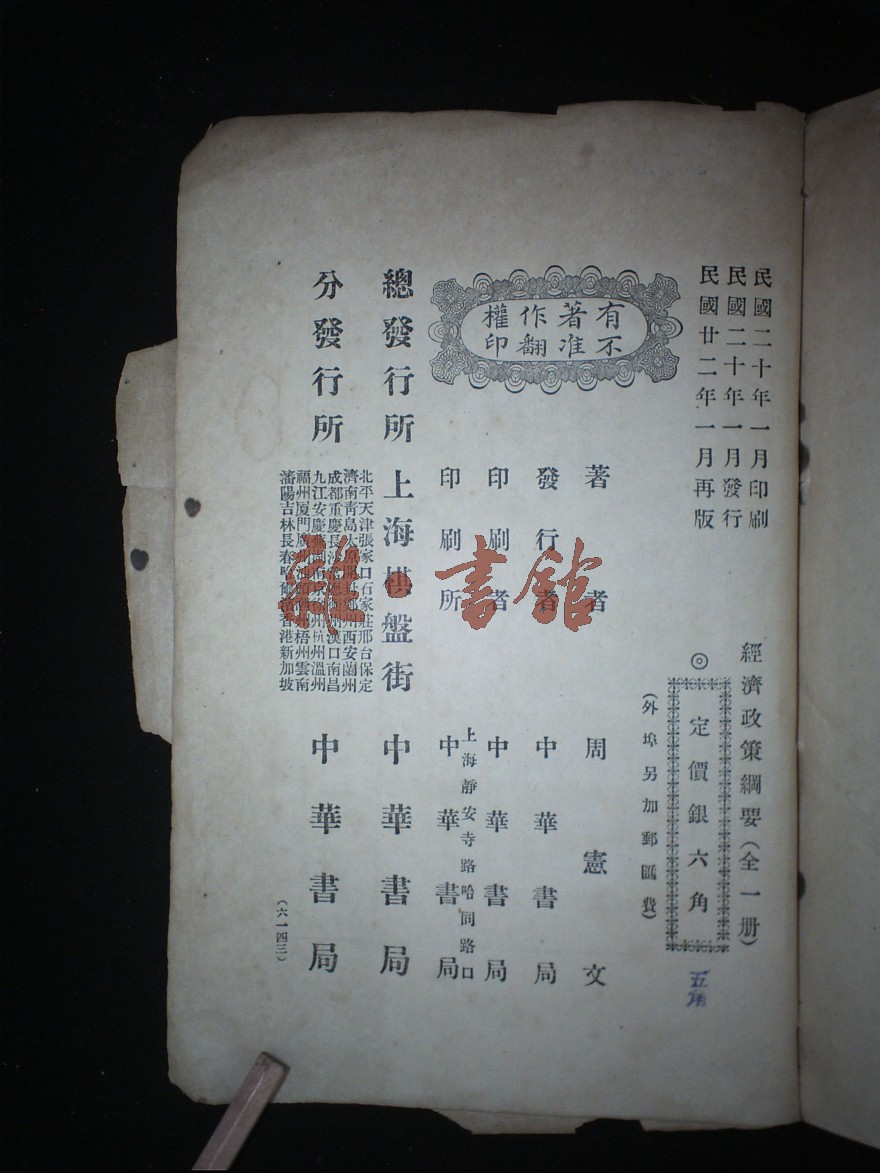 民國二十年一月印刷
民國二十年一月發行
民國廿二年一月再版
經濟政策綱要(全一册)
◎
定價銀六角
五角
(外埠另加郵匯費)
有著作權
不准翻印
著者 周憲文
發行者 中華書局
印刷者 中華書局
上海靜安寺路哈同路口
印刷所 中華書局
總發行所 上海棋盤街 中華書局
分發行所 中華書局
北平天津張家口石家莊邢台保定
濟南青島太原 鄭州西安蘭州
成都重慶長沙 漢口南昌
九江安慶蕪湖南京 杭州溫州
福州厦門廣州 梧州雲南
瀋陽吉林長春哈爾濱香港新加坡
(六一四三)
雜·書館